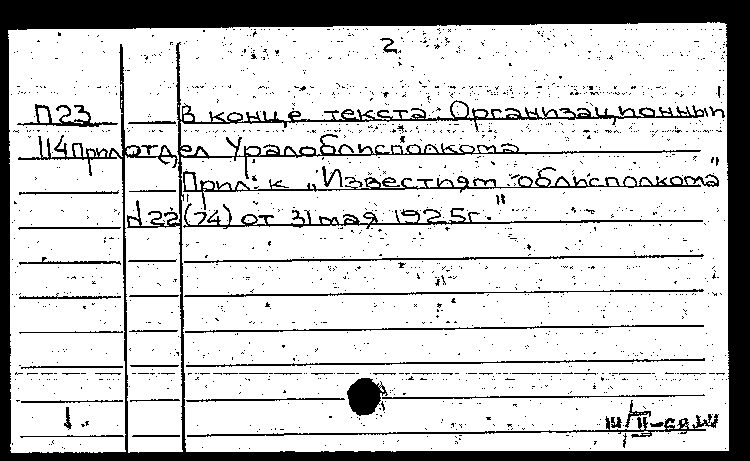 2
П23 В конце текста: Организационный
114прил отдел Уралоблисполкома
Прил. к „Известиям облисполкома"
N22(74) от 31 мая 1925г."
1.